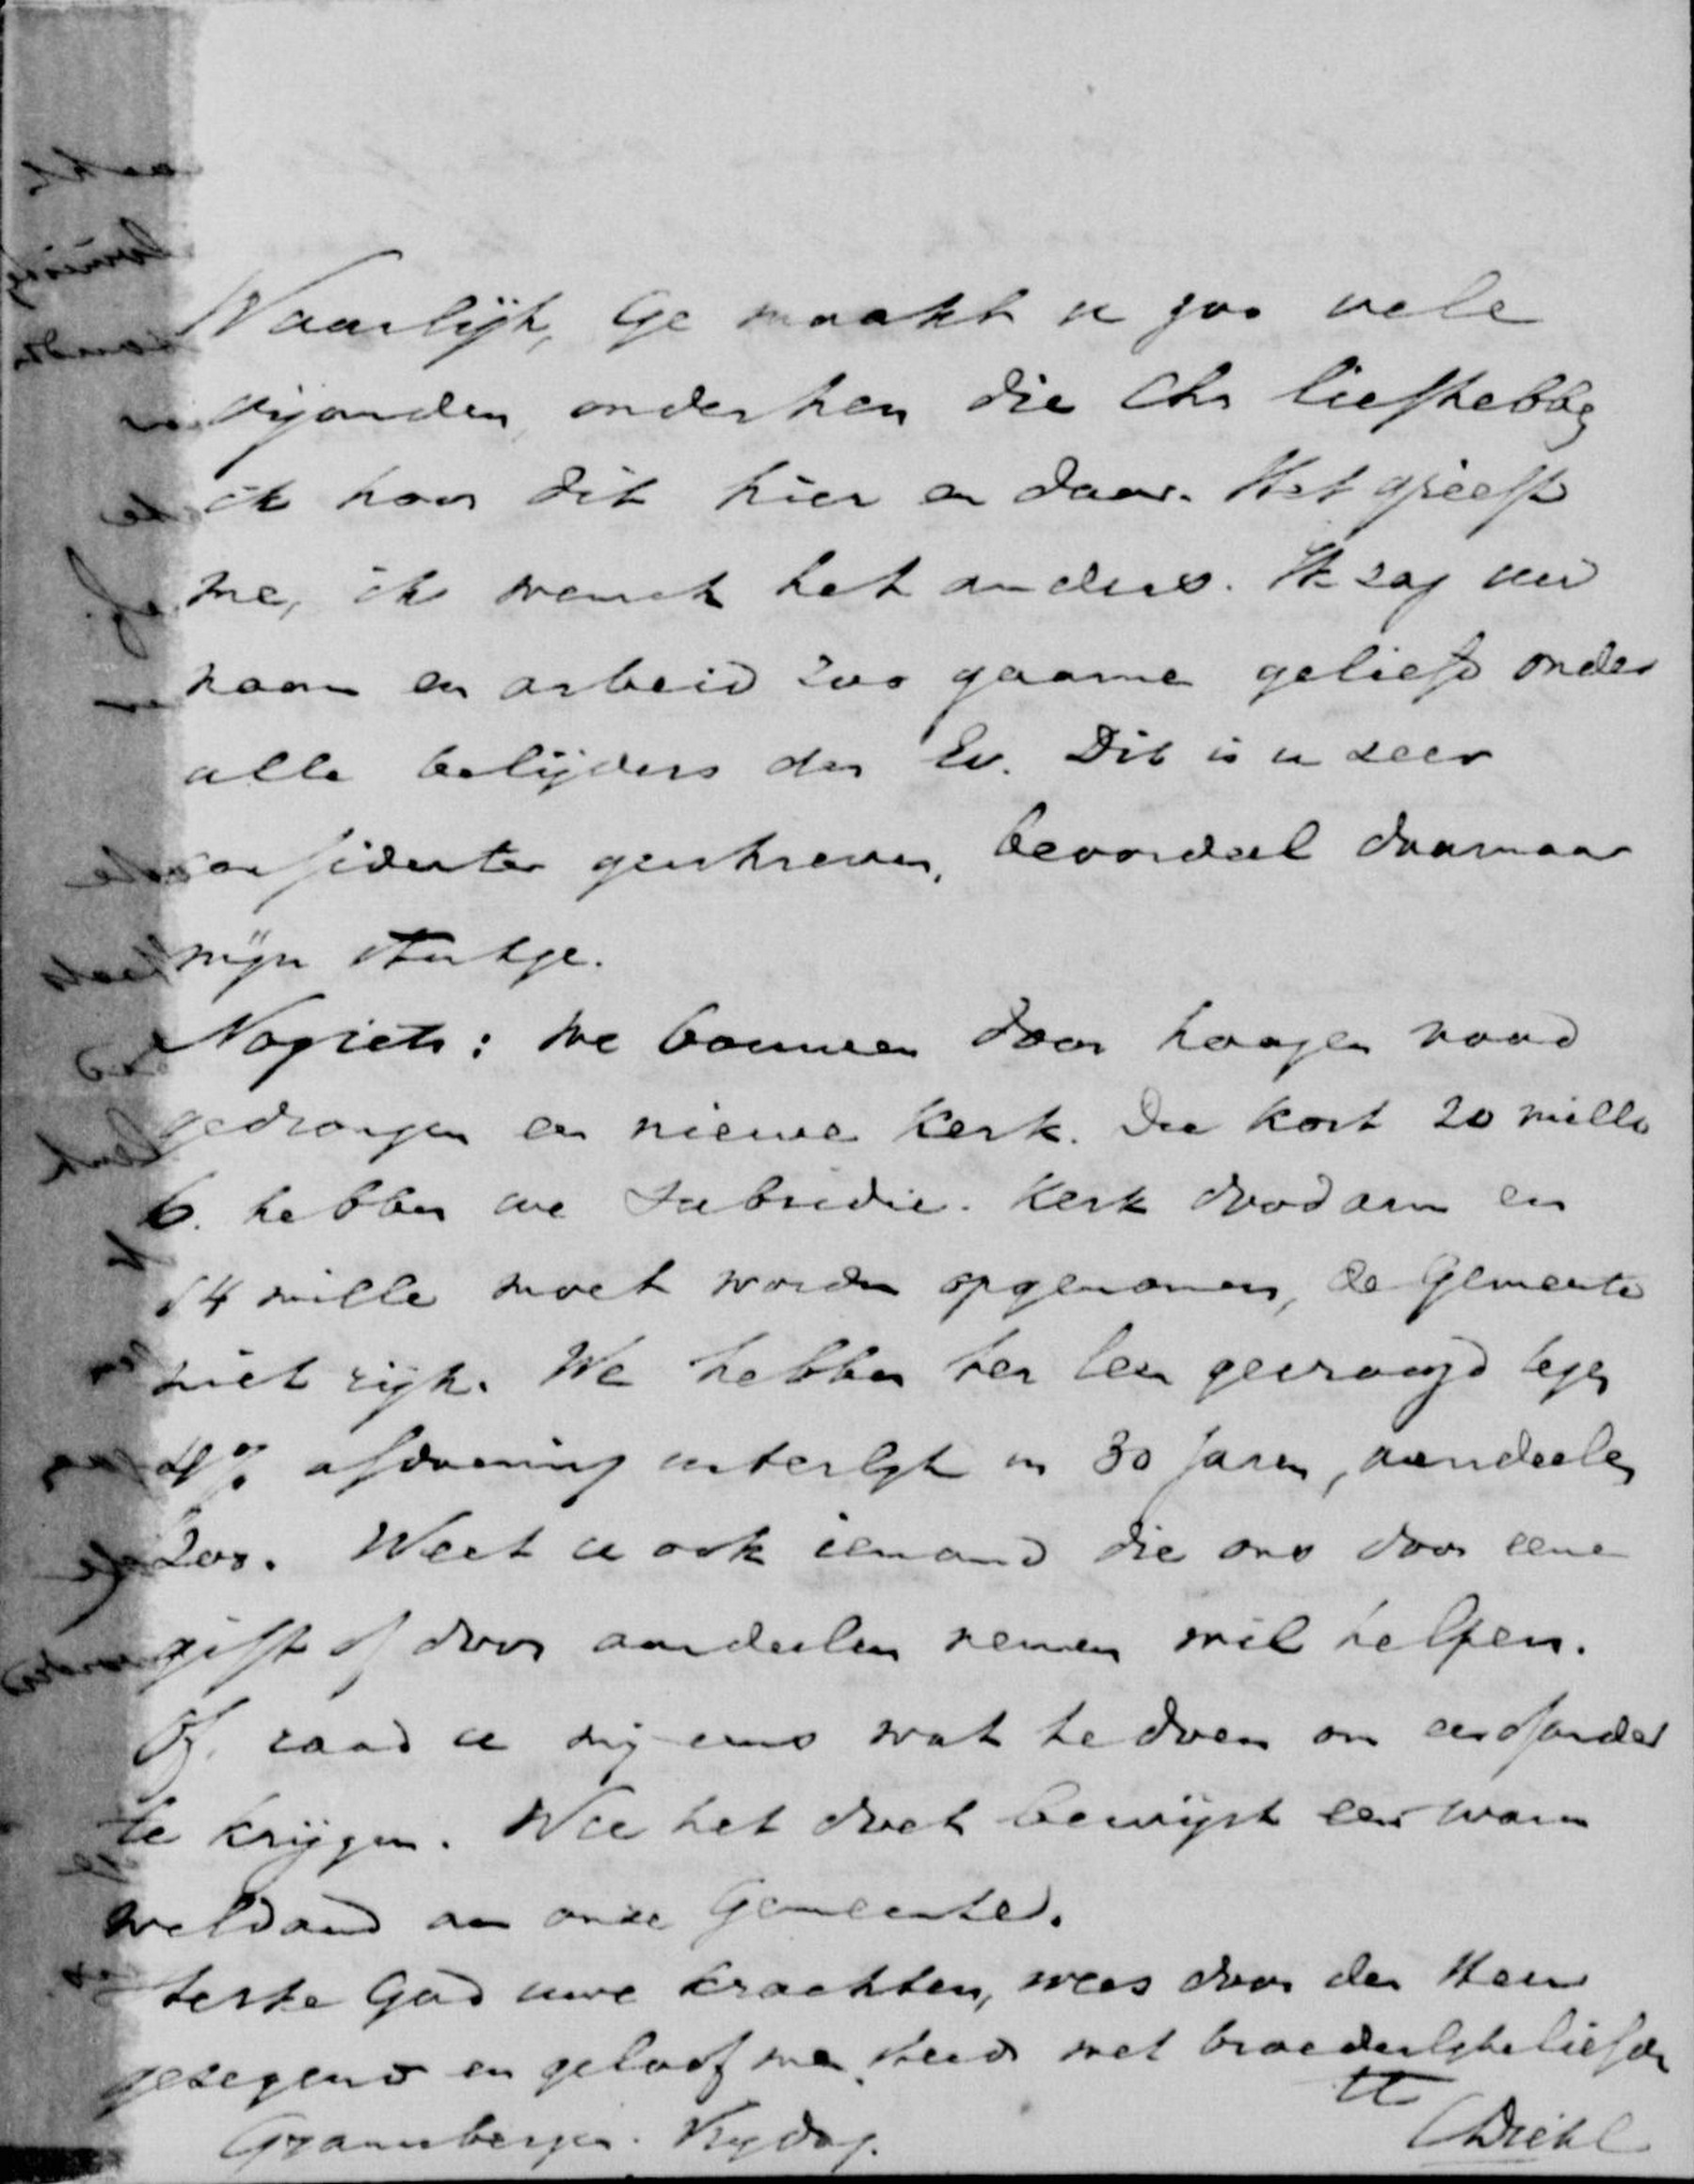 Waarlijk, Ge maakt u zoo vele
vijanden, onder hen die Chr liefhebben
ik hoor dit hier en daar. Het grieft
me, ik wensch het anders. Ik zag uw
naam en arbeid zoo gaarne geliefd onder
alle belijders des Ev. Dit is u zeer
confidenter geschreven, beoordeel daarnaar
mijn stukje.
Nog iets: we bouwen door hoogen nood
gedrongen een nieuwe kerk. Die kost 20 mille
6. hebben we Subsidie. Kerk doodarm en
14 mille moet worden opgenomen, de Gemeente
niet rijk. We hebben ter leen gevraagd tegen
4% afdoening uiterlijk in 30 jaren, aandeelen
200. Weet u ook iemand die ons door eene
gift of door aandeelen nemen wil helpen.
Of raad u mij eens wat te doen om een of ander
te krijgen. Wie het doet bewijst een ware
weldaad aan onze Gemeente.
Sterke God uwe krachten, wees door den Heer
gezegend en geloof me steeds met broederlijke liefde
tt
Gramsbergen. Vrijdag. CDiehl